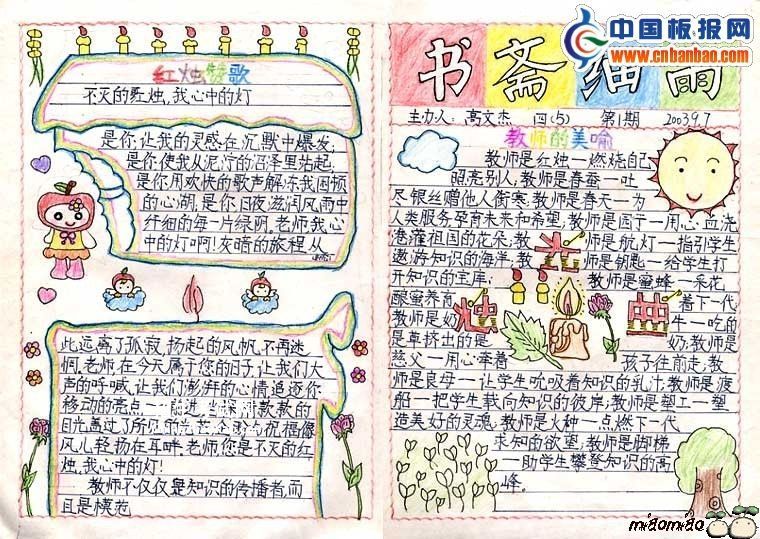 红烛颂歌
不灭的红烛，我心中的灯
是你，让我的灵感在沉默中爆发；
是你使我从泥泞的沼泽里站起；
是你用欢快的歌声解冻我困顿
的心湖，是你日夜滋润风雨中
纤细的每一片绿阴，老师，我心
中的灯啊！灰暗的旅程从
此远离了孤寂，扬起的风帆，不再迷
惘。老师，在今天属于您的日子，让我们大
声的呼喊，让我们澎湃的心情追逐你
移动的亮点
的目光，高过了所
风儿，轻扬在耳畔，老师，您是不灭的红
烛，我心中的灯！
教师不仅仅是知识的传播者，而
且是模范
中国板报网
www.cnbanbao.com
书斋细雨
主办人：高文杰 四(5) 第1期 2003.9.7
教师的美喻
教师是红烛—燃烧自己，
照亮别人；教师是春蚕—吐
尽银丝赠他人御寒；教师是春天—为
人类服务，孕育未来和希望；教师是园丁—用心血浇
灌祖国的花朵；教师是航灯—指引学生
遨游知识的海洋；教师是钥匙—给学生打
开知识的宝库；教师是蜜蜂—采花
酿蜜养育着下一代
教师是奶牛—吃的
是草挤出的是奶；教师是
慈父—用心牵着孩子往前走；教
师是良母—让学生吮吸着知识的乳汁；教师是渡
船—把学生载向知识的彼岸；教师是塑工—塑
造美好的灵魂；教师是火种—点燃下一代
求知的欲望；教师是脚梯
—助学生攀登知识的高
峰。
miaomiao